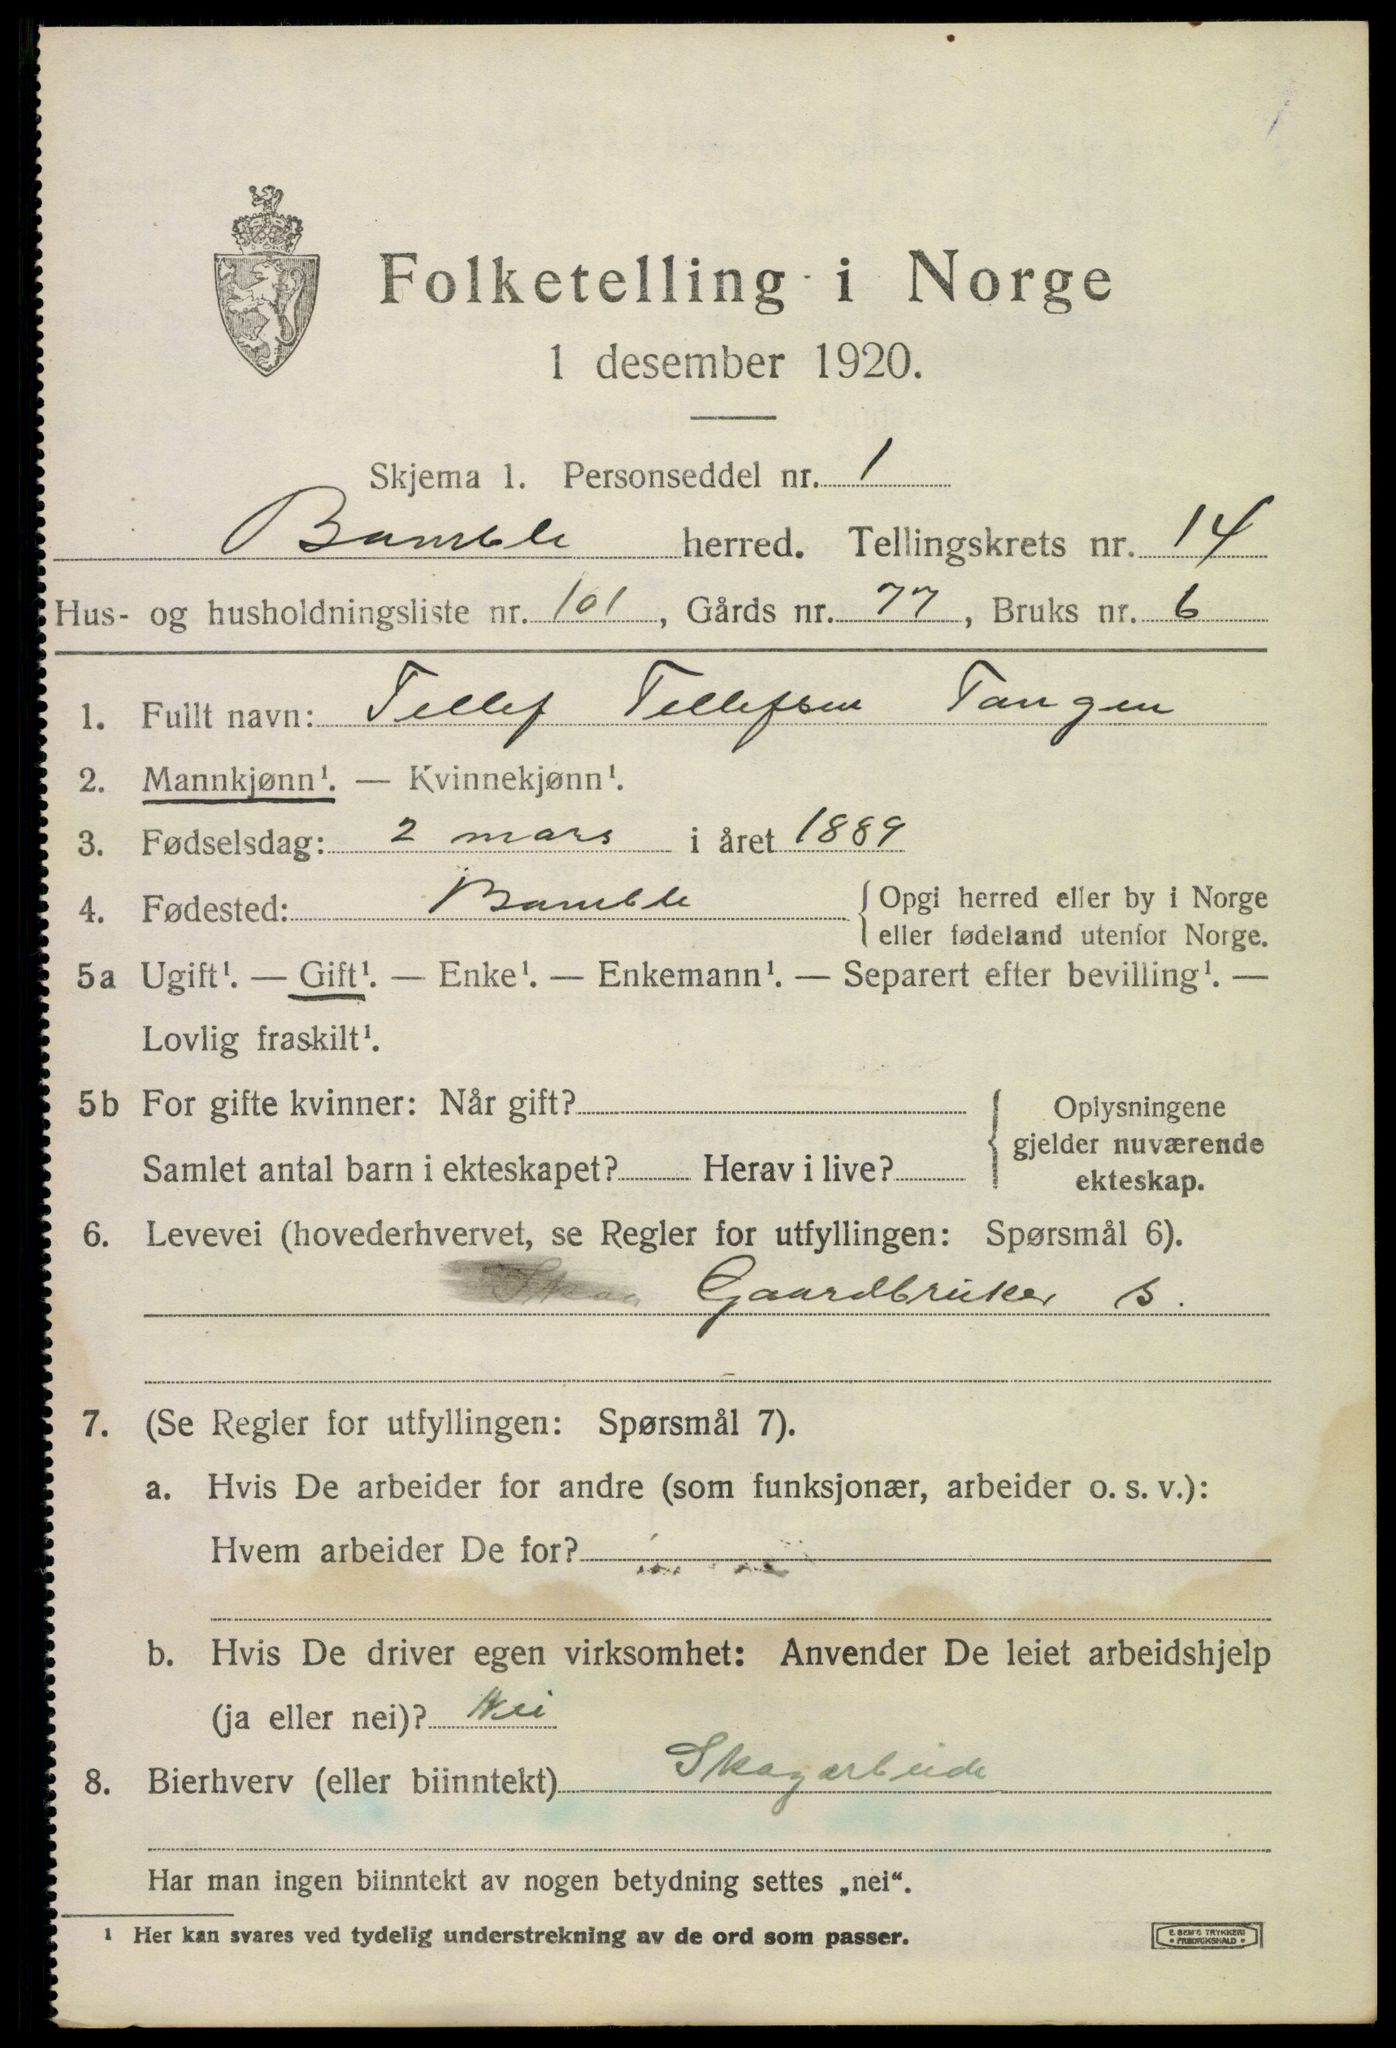 Folketelling i Norge
1 desember 1920.
Skjema 1. Personseddel nr. 1
Bamble herred. Tellingskrets nr. 14
Hus- og husholdningsliste nr. 101, Gårds nr. 77, Bruks nr. 6
1. Fullt navn: Tellef Tellefsen Tangen
2. Mannkjønn¹. — Kvinnekjønn¹.
3. Fødselsdag: 2 mars i året 1889
4. Fødested: Bamble { Opgi herred eller by i Norge
eller fødeland utenfor Norge.
5a Ugift¹. — Gift¹. — Enke¹. — Enkemann¹. — Separert efter bevilling¹. —
Lovlig fraskilt¹.
5b For gifte kvinner: Når gift?
Samlet antal barn i ekteskapet? Herav i live?
{ Oplysningene
gjelder nuværende
ekteskap.
6. Levevei (hovederhvervet, se Regler for utfyllingen: Spørsmål 6).
Gaardbruker s.
7. (Se Regler for utfyllingen: Spørsmål 7).
a. Hvis De arbeider for andre (som funksjonær, arbeider o. s. v.):
Hvem arbeider De for?
b. Hvis De driver egen virksomhet: Anvender De leiet arbeidshjelp
(ja eller nei)? Nei
8. Bierhverv (eller biinntekt) Skogarbeide
Har man ingen biinntekt av nogen betydning settes „nei“.
¹ Her kan svares ved tydelig understrekning av de ord som passer.
E. SEM'S TRYKKERI
• FREDRIKSHALD •